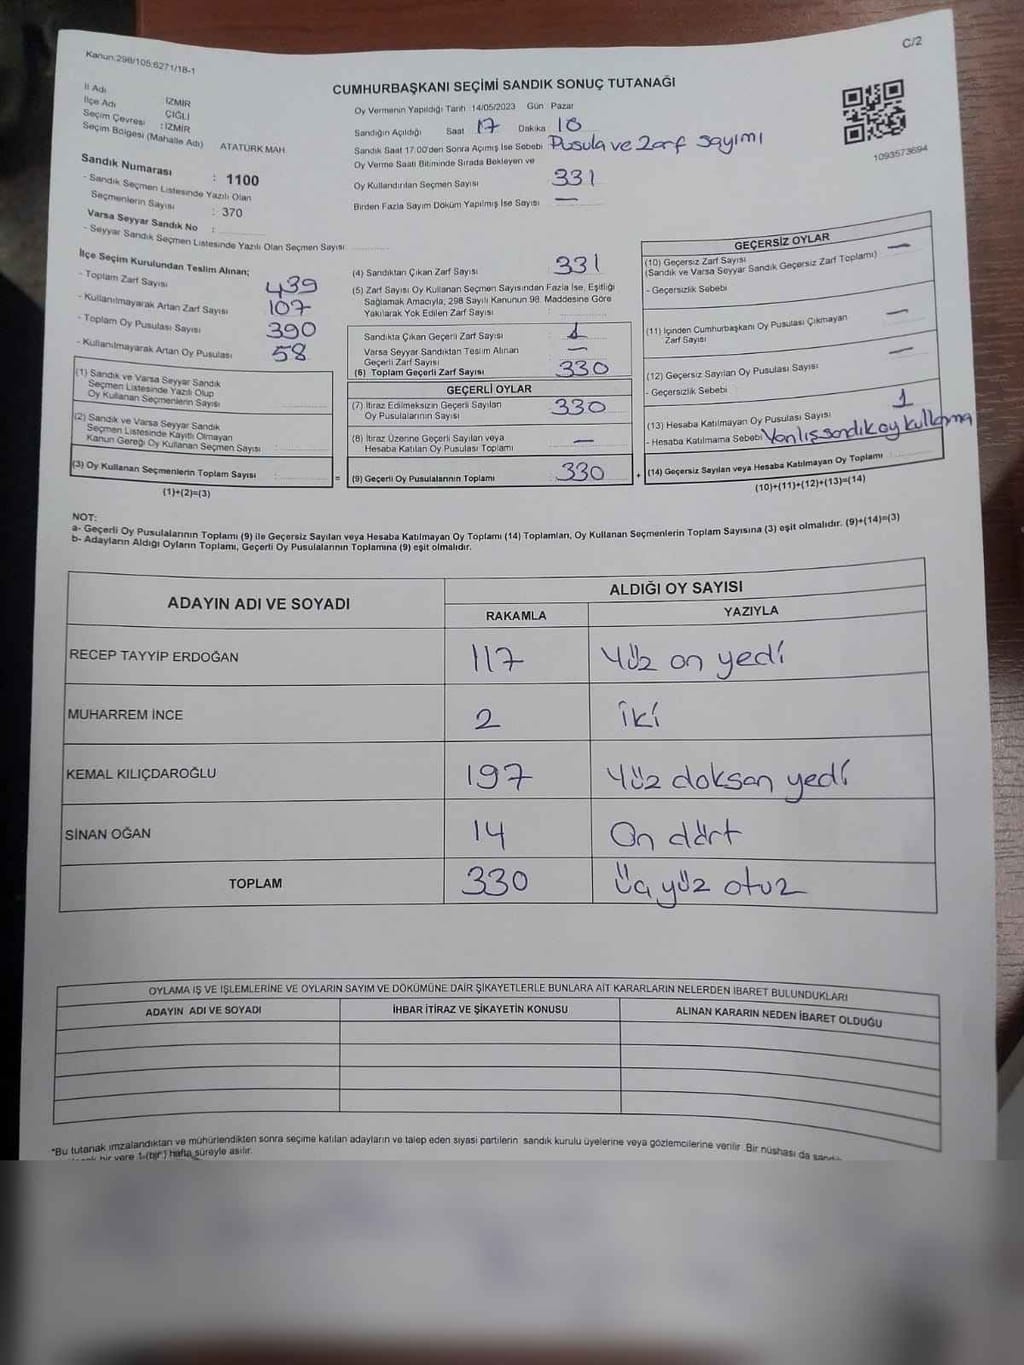 Kanun:298/105:6271/18-1
C/2
CUMHURBAŞKANI SEÇİMİ SANDIK SONUÇ TUTANAĞI
İl Adı İZMİR
İlçe Adı ÇİĞLİ
Seçim Çevresi : İZMİR
Seçim Bölgesi (Mahalle Adı) ATATÜRK MAH.
Sandık Numarası : 1100
- Sandık Seçmen Listesinde Yazılı Olan
Seçmenlerin Sayısı : 370
Varsa Seyyar Sandık No :
- Seyyar Sandık Seçmen Listesinde Yazılı Olan Seçmen Sayısı:
Oy Vermenin Yapıldığı Tarih 14/05/2023 Gün Pazar
Sandığın Açıldığı Saat 17 Dakika 18
Sandık Saat 17:00'den Sonra Açımış İse Sebebi Pusula ve Zarf sayımı
Oy Verme Saati Bitiminde Sırada Bekleyen ve
Oy Kullandırılan Seçmen Sayısı 331
Birden Fazla Sayım Döküm Yapılmış İse Sayısı —
1093573694
İlçe Seçim Kurulundan Teslim Alınan;
- Toplam Zarf Sayısı 439
- Kullanılmayarak Artan Zarf Sayısı 107
- Toplam Oy Pusulası Sayısı 390
- Kullanılmayarak Artan Oy Pusulası 58
(1) Sandık ve Varsa Seyyar Sandık
Seçmen Listesinde Yazılı Olup
Oy Kullanan Seçmenlerin Sayısı
(2) Sandık ve Varsa Seyyar Sandık
Seçmen Listesinde Kayıtlı Olmayan
Kanun Gereği Oy Kullanan Seçmen Sayısı :
(3) Oy Kullanan Seçmenlerin Toplam Sayısı :
(1)+(2)=(3)
(4) Sandıktan Çıkan Zarf Sayısı 331
(5) Zarf Sayısı Oy Kullanan Seçmen Sayısından Fazla İse, Eşitliği
Sağlamak Amacıyla, 298 Sayılı Kanunun 98. Maddesine Göre
Yakılarak Yok Edilen Zarf Sayısı :
Sandıkta Çıkan Geçerli Zarf Sayısı 1
Varsa Seyyar Sandıktan Teslim Alınan
Geçerli Zarf Sayısı —
(6) Toplam Geçerli Zarf Sayısı 330
GEÇERLİ OYLAR
(7) İtiraz Edilmeksizin Geçerli Sayılan
Oy Pusulalarının Sayısı 330
(8) İtiraz Üzerine Geçerli Sayılan veya
Hesaba Katılan Oy Pusulası Toplamı —
= (9) Geçerli Oy Pusulalarının Toplamı 330 +
GEÇERSİZ OYLAR
(10) Geçersiz Zarf Sayısı —
(Sandık ve Varsa Seyyar Sandık Geçersiz Zarf Toplamı)
- Geçersizlik Sebebi
(11) İçinden Cumhurbaşkanı Oy Pusulası Çıkmayan
Zarf Sayısı —
(12) Geçersiz Sayılan Oy Pusulası Sayısı —
- Geçersizlik Sebebi :
(13) Hesaba Katılmayan Oy Pusulası Sayısı 1
- Hesaba Katılmama Sebebi Yanlış sandık oy kullanma
(14) Geçersiz Sayılan veya Hesaba Katılmayan Oy Toplamı
(10)+(11)+(12)+(13)=(14)
NOT:
a- Geçerli Oy Pusulalarının Toplamı (9) ile Geçersiz Sayılan veya Hesaba Katılmayan Oy Toplamı (14) Toplamları, Oy Kullanan Seçmenlerin Toplam Sayısına (3) eşit olmalıdır. (9)+(14)=(3)
b- Adayların Aldığı Oyların Toplamı, Geçerli Oy Pusulalarının Toplamına (9) eşit olmalıdır.
ADAYIN ADI VE SOYADI
ALDIĞI OY SAYISI
RAKAMLA YAZIYLA
RECEP TAYYİP ERDOĞAN 117 Yüz on yedi
MUHARREM İNCE 2 iki
KEMAL KILIÇDAROĞLU 197 Yüz doksan yedi
SİNAN OĞAN 14 On dört
TOPLAM 330 Üç yüz otuz
OYLAMA İŞ VE İŞLEMLERİNE VE OYLARIN SAYIM VE DÖKÜMÜNE DAİR ŞİKAYETLERLE BUNLARA AİT KARARLARIN NELERDEN İBARET BULUNDUKLARI
ADAYIN ADI VE SOYADI İHBAR İTİRAZ VE ŞİKAYETİN KONUSU ALINAN KARARIN NEDEN İBARET OLDUĞU
*Bu tutanak imzalandıktan ve mühürlendikten sonra seçime katılan adayların ve talep eden siyasi partilerin sandık kurulu üyelerine veya gözlemcilerine verilir. Bir nüshası da
bir yere 1 (bir) hafta süreyle asılır.